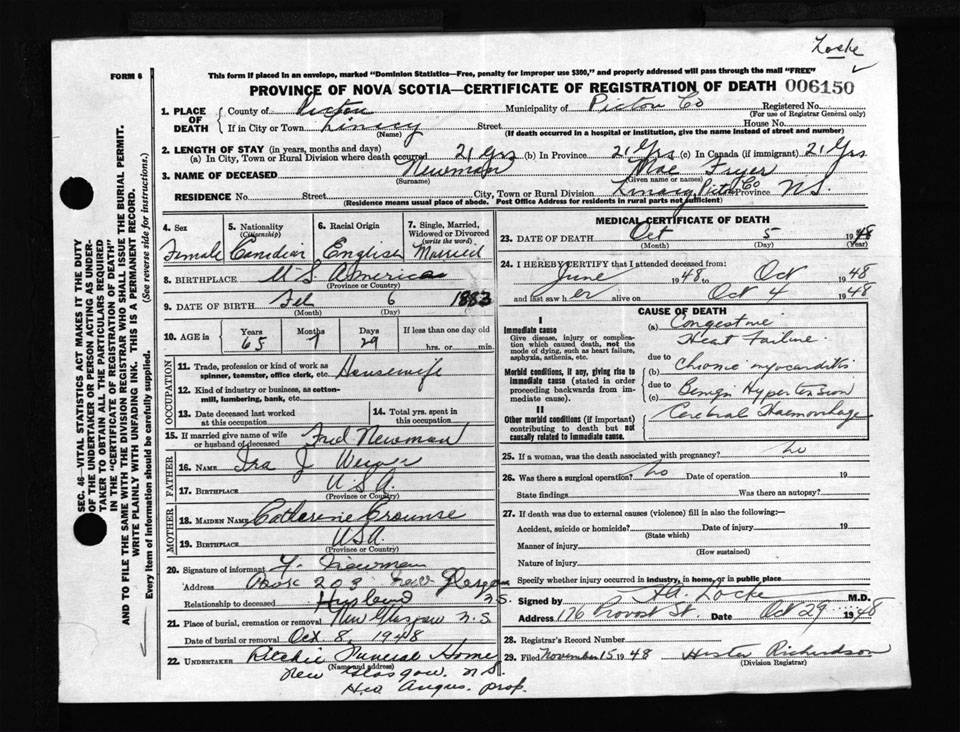 Locke
FORM 6
This form if placed in an envelope, marked "Dominion Statistics—Free, penalty for improper use $300," and properly addressed will pass through the mail "FREE"
PROVINCE OF NOVA SCOTIA—CERTIFICATE OF REGISTRATION OF DEATH 006150
1. PLACE OF DEATH County of Pictou Municipality of Pictou Co Registered No.
(For use of Registrar General only)
If in City or Town Linacy Street House No.
(Name) (If death occurred in a hospital or institution, give the name instead of street and number)
2. LENGTH OF STAY (in years, months and days)
(a) In City, Town or Rural Division where death occurred 21 Yrs (b) In Province 21 Yrs (c) In Canada (if immigrant) 21 Yrs
3. NAME OF DECEASED Newman Mae Fryer
(Surname) (Given name or names)
RESIDENCE No. Street City, Town or Rural Division Linacy Pict Co Province N.S.
(Residence means usual place of abode. Post Office Address for residents in rural parts not sufficient)
SEC. 46—VITAL STATISTICS ACT MAKES IT THE DUTY
OF THE UNDERTAKER OR PERSON ACTING AS UNDER-
TAKER TO OBTAIN ALL THE PARTICULARS REQUIRED
IN THE "CERTIFICATE OF REGISTRATION OF DEATH"
AND TO FILE THE SAME WITH THE DIVISION REGISTRAR WHO SHALL ISSUE THE BURIAL PERMIT.
WRITE PLAINLY WITH UNFADING INK. THIS IS A PERMANENT RECORD.
Every item of information should be carefully supplied. (See reverse side for instructions.)
4. Sex Female
5. Nationality (Citizenship) Canadian
6. Racial Origin English
7. Single, Married, Widowed or Divorced (write the word) Married
8. BIRTHPLACE U.S. America
(Province or Country)
9. DATE OF BIRTH Feb 6 1883
(Month) (Day)
10. AGE in Years 65 Months 7 Days 29 If less than one day old
hrs. or min.
OCCUPATION
11. Trade, profession or kind of work as spinner, teamster, office clerk, etc. Housewife
12. Kind of industry or business, as cotton-mill, lumbering, bank, etc.
13. Date deceased last worked at this occupation
14. Total yrs. spent in this occupation
15. If married give name of wife or husband of deceased Fred Newman
FATHER
16. NAME Ira J
17. BIRTHPLACE USA.
(Province or Country)
MOTHER
18. MAIDEN NAME Catherine Crounse
19. BIRTHPLACE USA.
(Province or Country)
20. Signature of informant F. Newman
Address Box 203 New Glasgow N.S.
Relationship to deceased Husband
21. Place of burial, cremation or removal New Glasgow N.S.
Date of burial or removal Oct. 8, 1948
22. UNDERTAKER Ritchie Funeral Home
(Name and address)
New Glasgow. N.S.
Angus. prop.
MEDICAL CERTIFICATE OF DEATH
23. DATE OF DEATH Oct 5 1948
(Month) (Day) (Year)
24. I HEREBY CERTIFY that I attended deceased from:
June 1948 to Oct 1948
and last saw her alive on Oct 4 1948
CAUSE OF DEATH
I
Immediate cause
Give disease, injury or complication which caused death, not the mode of dying, such as heart failure, asphyxia, asthenia, etc.
(a) Congestive
Heart Failure
due to
Morbid conditions, if any, giving rise to immediate cause (stated in order proceeding backwards from immediate cause).
(b) Chronic myocarditis
due to
(c) Benign Hypertension
II
Other morbid conditions (if important) contributing to death but not causally related to immediate cause.
Cerebral Haemorrhage
25. If a woman, was the death associated with pregnancy? no
26. Was there a surgical operation? no Date of operation 19
State findings Was there an autopsy?
27. If death was due to external causes (violence) fill in also the following:—
Accident, suicide or homicide? Date of injury 19
(State which)
Manner of injury
(How sustained)
Nature of injury
Specify whether injury occurred in industry, in home, or in public place
Signed by H.A. Locke M.D.
Address 176 Provost St. Date Oct 29 1948
28. Registrar's Record Number
29. Filed November 15 1948 Hester Richardson
(Division Registrar)